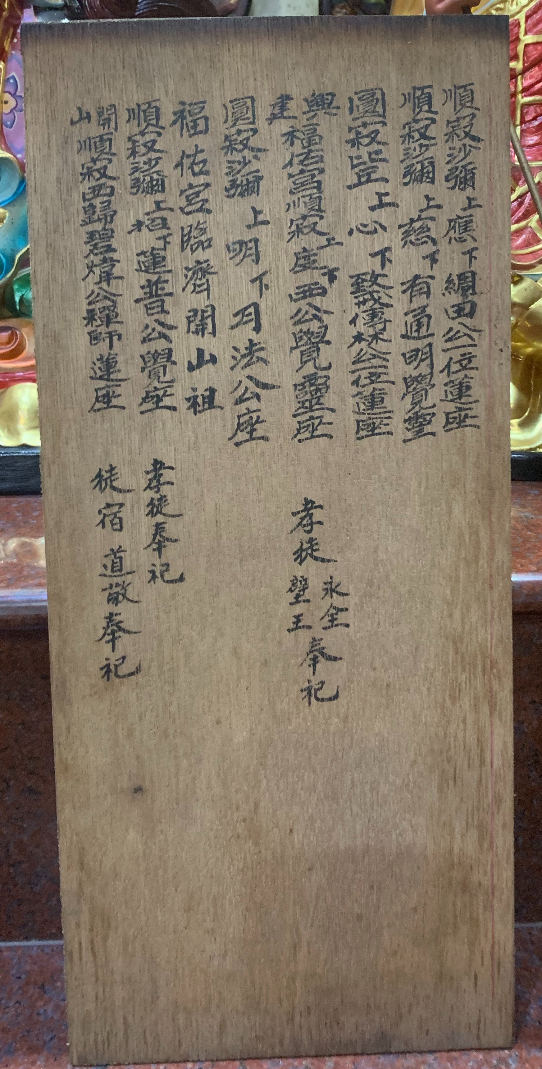 順寂沙彌上應下綢田公一位蓮座
順寂沙彌上慈下有通明覺靈
圓寂毕丘上心下致我傳林公一位蓮座
興建福佑宮順寂上座下西公覺靈座
圓寂沙彌上明下月法公座
福佑宮臨濟開山祖
順寂沙彌上栢下蓮普公覺座
開山順寂西歸碧煒公禪師蓮座
孝徒永全璧王奉祀
孝徒奉祀
徒宿道敬奉祀